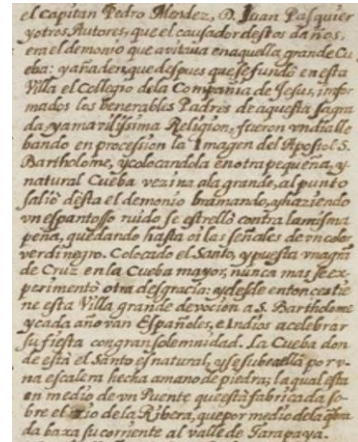 el Capitan Pedro Mendez, D. Juan Pasquier
y otros Autores, que el causador destos daños,
era el demonio que avitava en aquella grande Cu
eba: y añaden, que despues que se fundò en esta
Villa el Collegio dela Compañia de Jesus, infor
mados los Venerables Padres de aquesta sagra
da, y amavilissima Religion, fueron vn dia lle
bando en procession la Imagen del Apostol S.
Bartholome, y colocandola en otra pequeña, y
natural Cueba vezina ala grande, al punto
saliò desta el demonio bramando, y haziendo
vn espantoso ruido se estrellò contra la misma
peña, quedando hasta oi las señales de vn color
verdinegro. Colocado el Santo, y puesta vna gra
de Cruz en la Cueba mayor, nunca mas se ex
perimentò otra desgracia: y desde entonces tie
ne esta Villa grande devocion a S. Bartholome
y cada año van Españoles, e Indios a celebrar
su fiesta con gran solemnidad. La Cueba don
de està el Santo es natural, y se sube a ella por v
na escalera hecha a mano de piedra; la qual esta
en medio de vn Puente que està fabricada so
bre el rio dela Ribera, que por medio dela
da baxa su corriente al valle de Tarapaya.